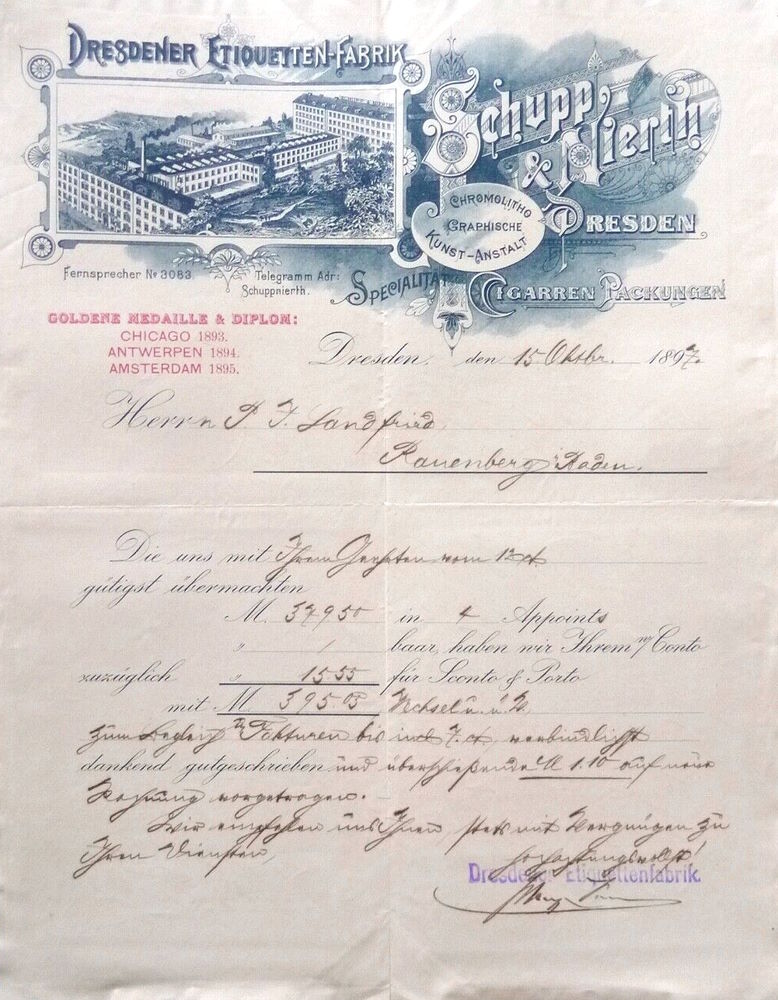 DRESDENER ETIQUETTEN-FABRIK
Schupp & Nierth
DRESDEN
CHROMOLITHO
GRAPHISCHE
KUNST-ANSTALT
Fernsprecher No 3083.
Telegramm Adr:
Schuppnierth.
SPECIALITÄT CIGARREN PACKUNGEN
GOLDENE MEDAILLE & DIPLOM:
CHICAGO 1893.
ANTWERPEN 1894.
AMSTERDAM 1895.
Dresden, den 15 Oktbr. 1897.
Herrn P. J. Landfried,
Rauenberg i/Baden.
Die uns mit Ihrem Geehrten vom 12 ct
gütigst übermachten
M. 379 50 in 4 Appoints
" / baar, haben wir Ihrem w/ Conto
zuzüglich " 15.55 für Sconto & Porto
mit M 395.05 Wechsel u. u. V.
zum Begleich Fakturen bis incl. 7. ct verbindlichst
dankend gutgeschrieben und überschießende M 1.10 auf neue
Rechnung vorgetragen. -
Wir empfehlen uns Ihnen stets mit Vergnügen zu
Ihren Diensten,
hochachtungsvollst!
Dresdener Etiquettenfabrik.